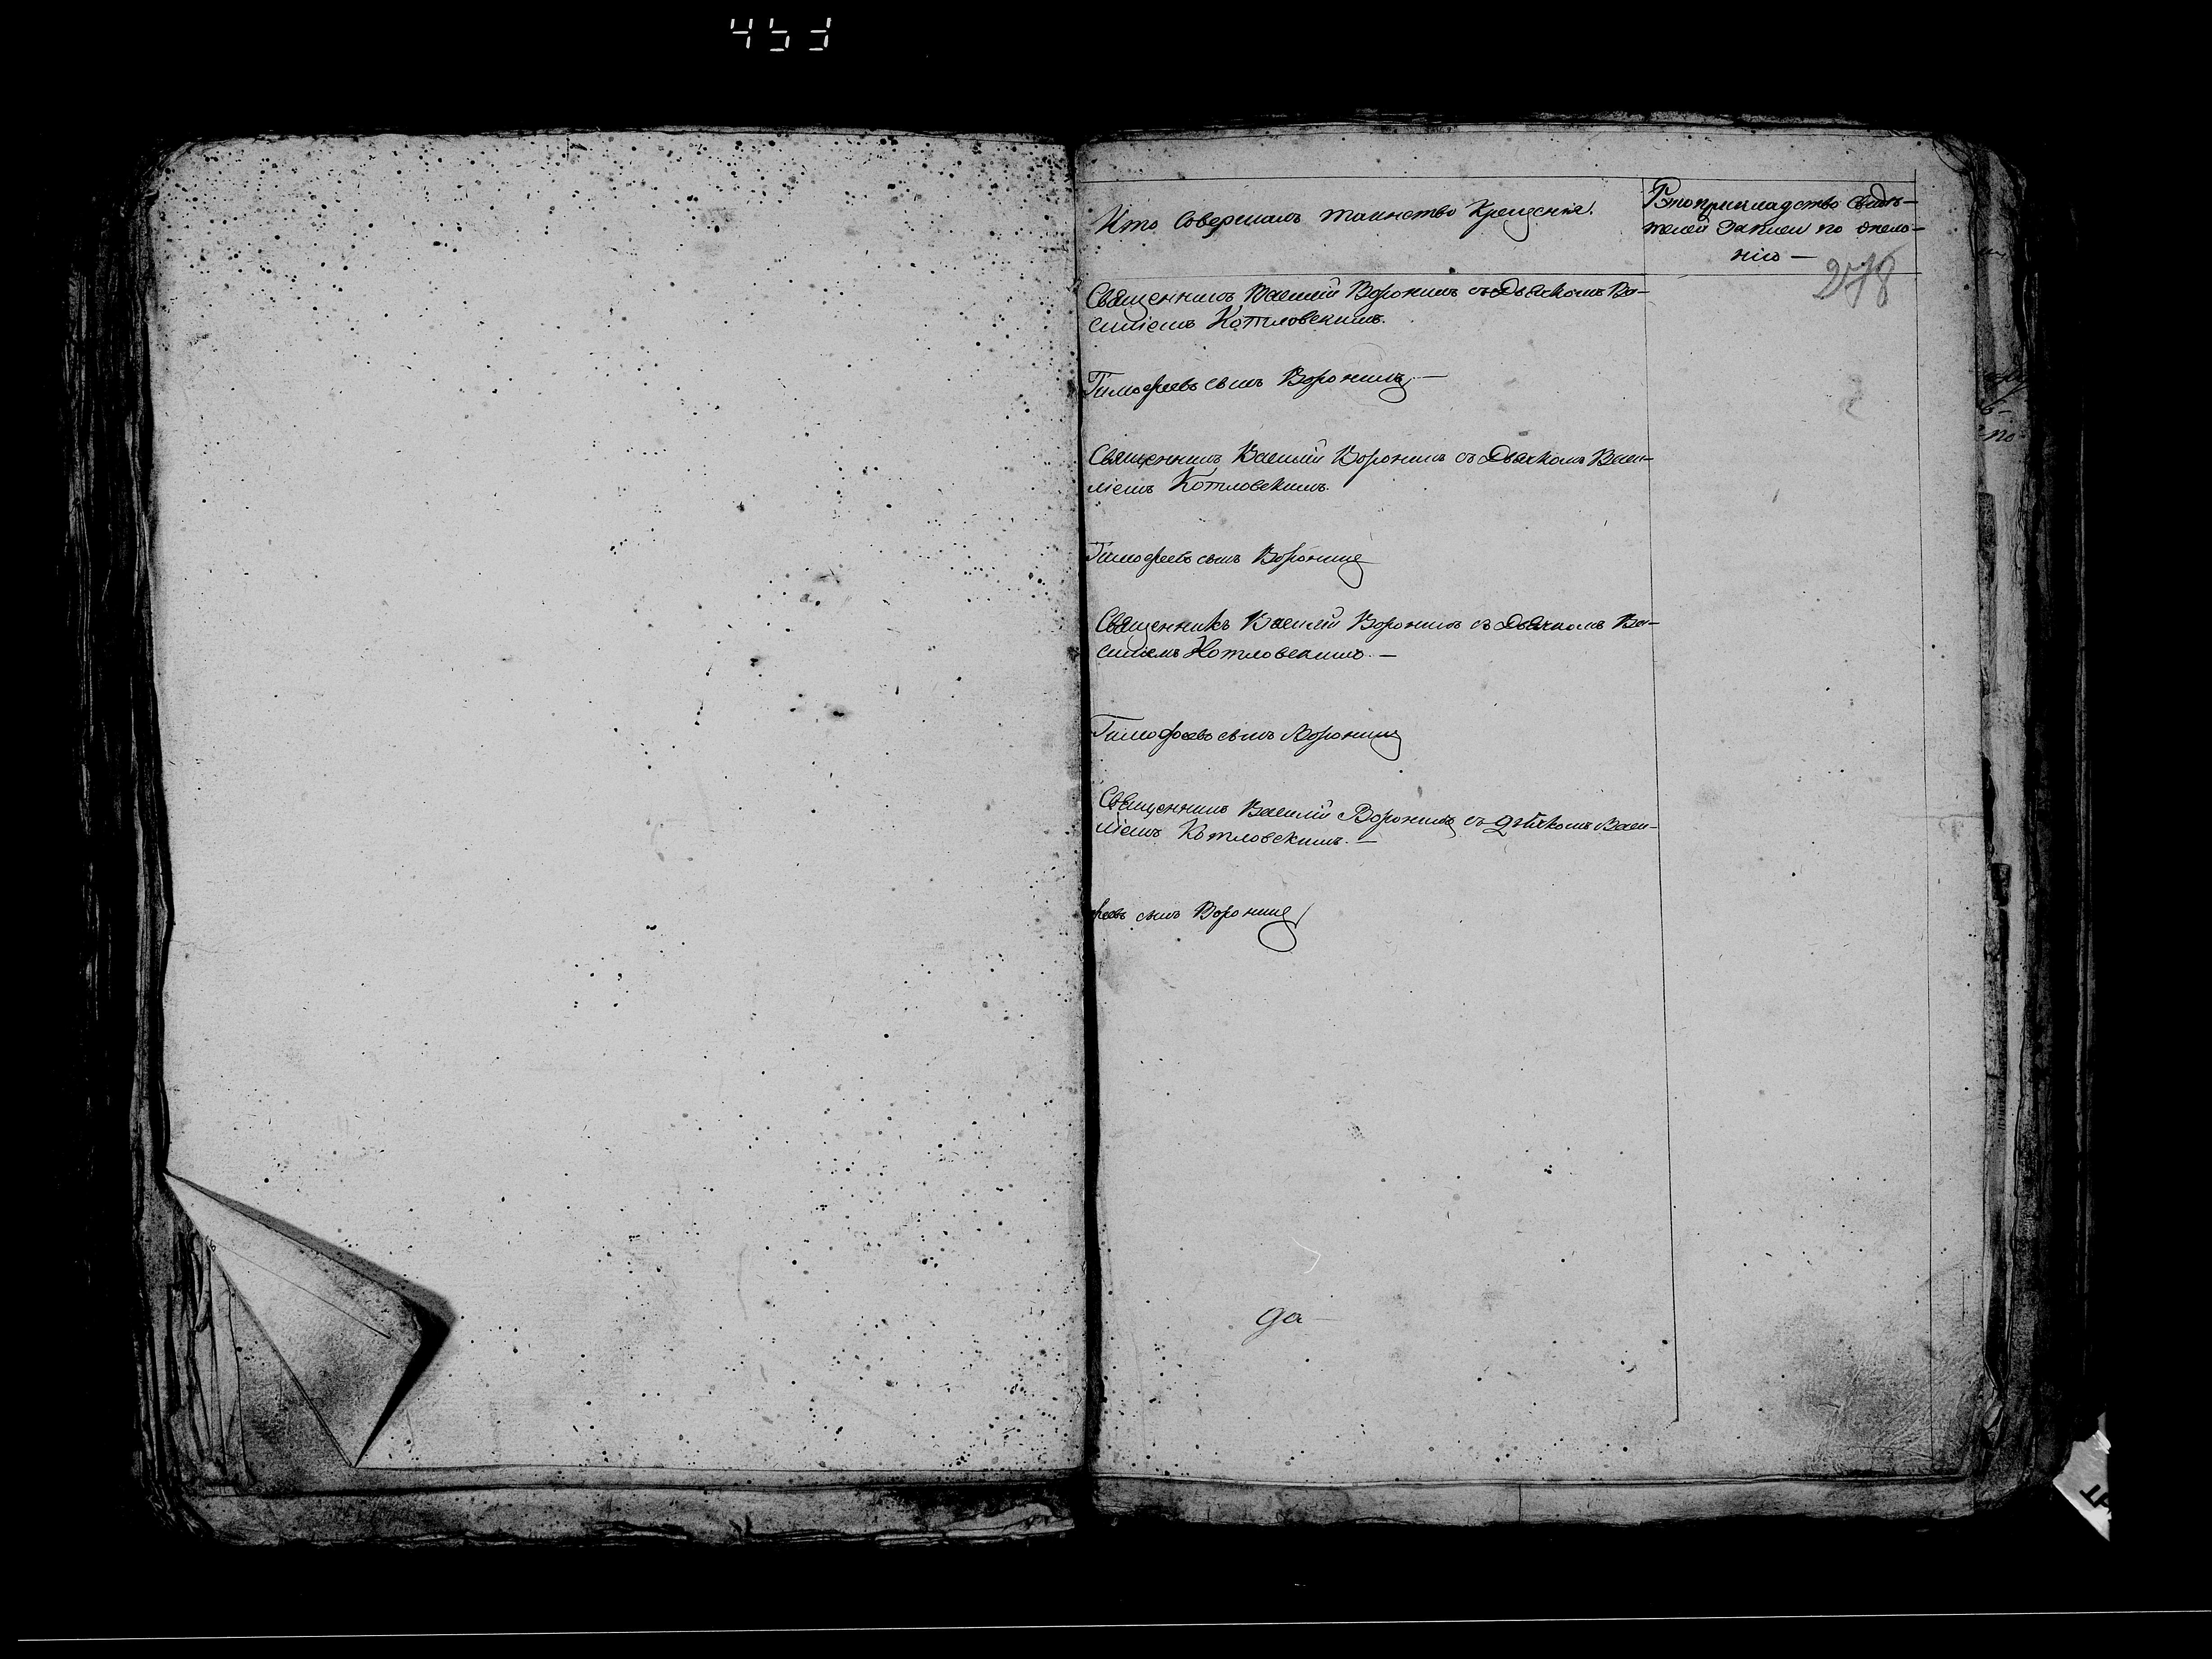 453
Кто совершалъ таинство Крещенія.
Рукоприкладство свидѣ-
телей записи по жела-
нію —
278
Священникъ Василій Воронинъ съ Дьячкомъ Ва-
силіемъ Котловскимъ.
Тимофеевъ сынъ Воронинъ —
Священникъ Василій Воронинъ съ Дьячкомъ Васи-
ліемъ Котловскимъ.
Тимофеевъ сынъ Воронинъ
Священникъ Василій Воронинъ съ Дьячкомъ Ва-
силіемъ Котловскимъ. —
Тимофеевъ сынъ Воронинъ
Священникъ Василій Воронинъ съ дьячкомъ Васи-
ліемъ Котловскимъ. —
феевъ сынъ Воронинъ
да